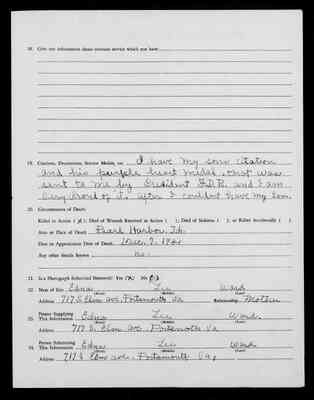 18. Give any information about overseas service which you have
19. Citations, Decorations, Service Medals, etc. I have my sons citation
and his purple heart medal, that was
sent to me by President F.D.R. and I am
very proud of it. after I couldnt have my son.
20. Circumstances of Death:
Killed in Action ( ); Died of Wounds Received in Action ( ); Died of Sickness ( ); or Killed Accidentally ( )
Area or Place of Death Pearl Harbor, T.H.
Date or Approximate Date of Death Dec. 7, 1941
Any other details known no.
21. Is a Photograph Submitted Herewith? Yes ( ) No ( )
22. Name of Kin Edna Lee Ward
Address 717 S. Elm ave. Portsmouth Va Relationship Mother
23. Person Supplying This Information Edna Lee Ward.
Address 717 S. Elm ave. Portsmouth Va
24. Person Submitting This Information Edna Lee Ward.
Address 717 S. Elm ave. Portsmouth Va,